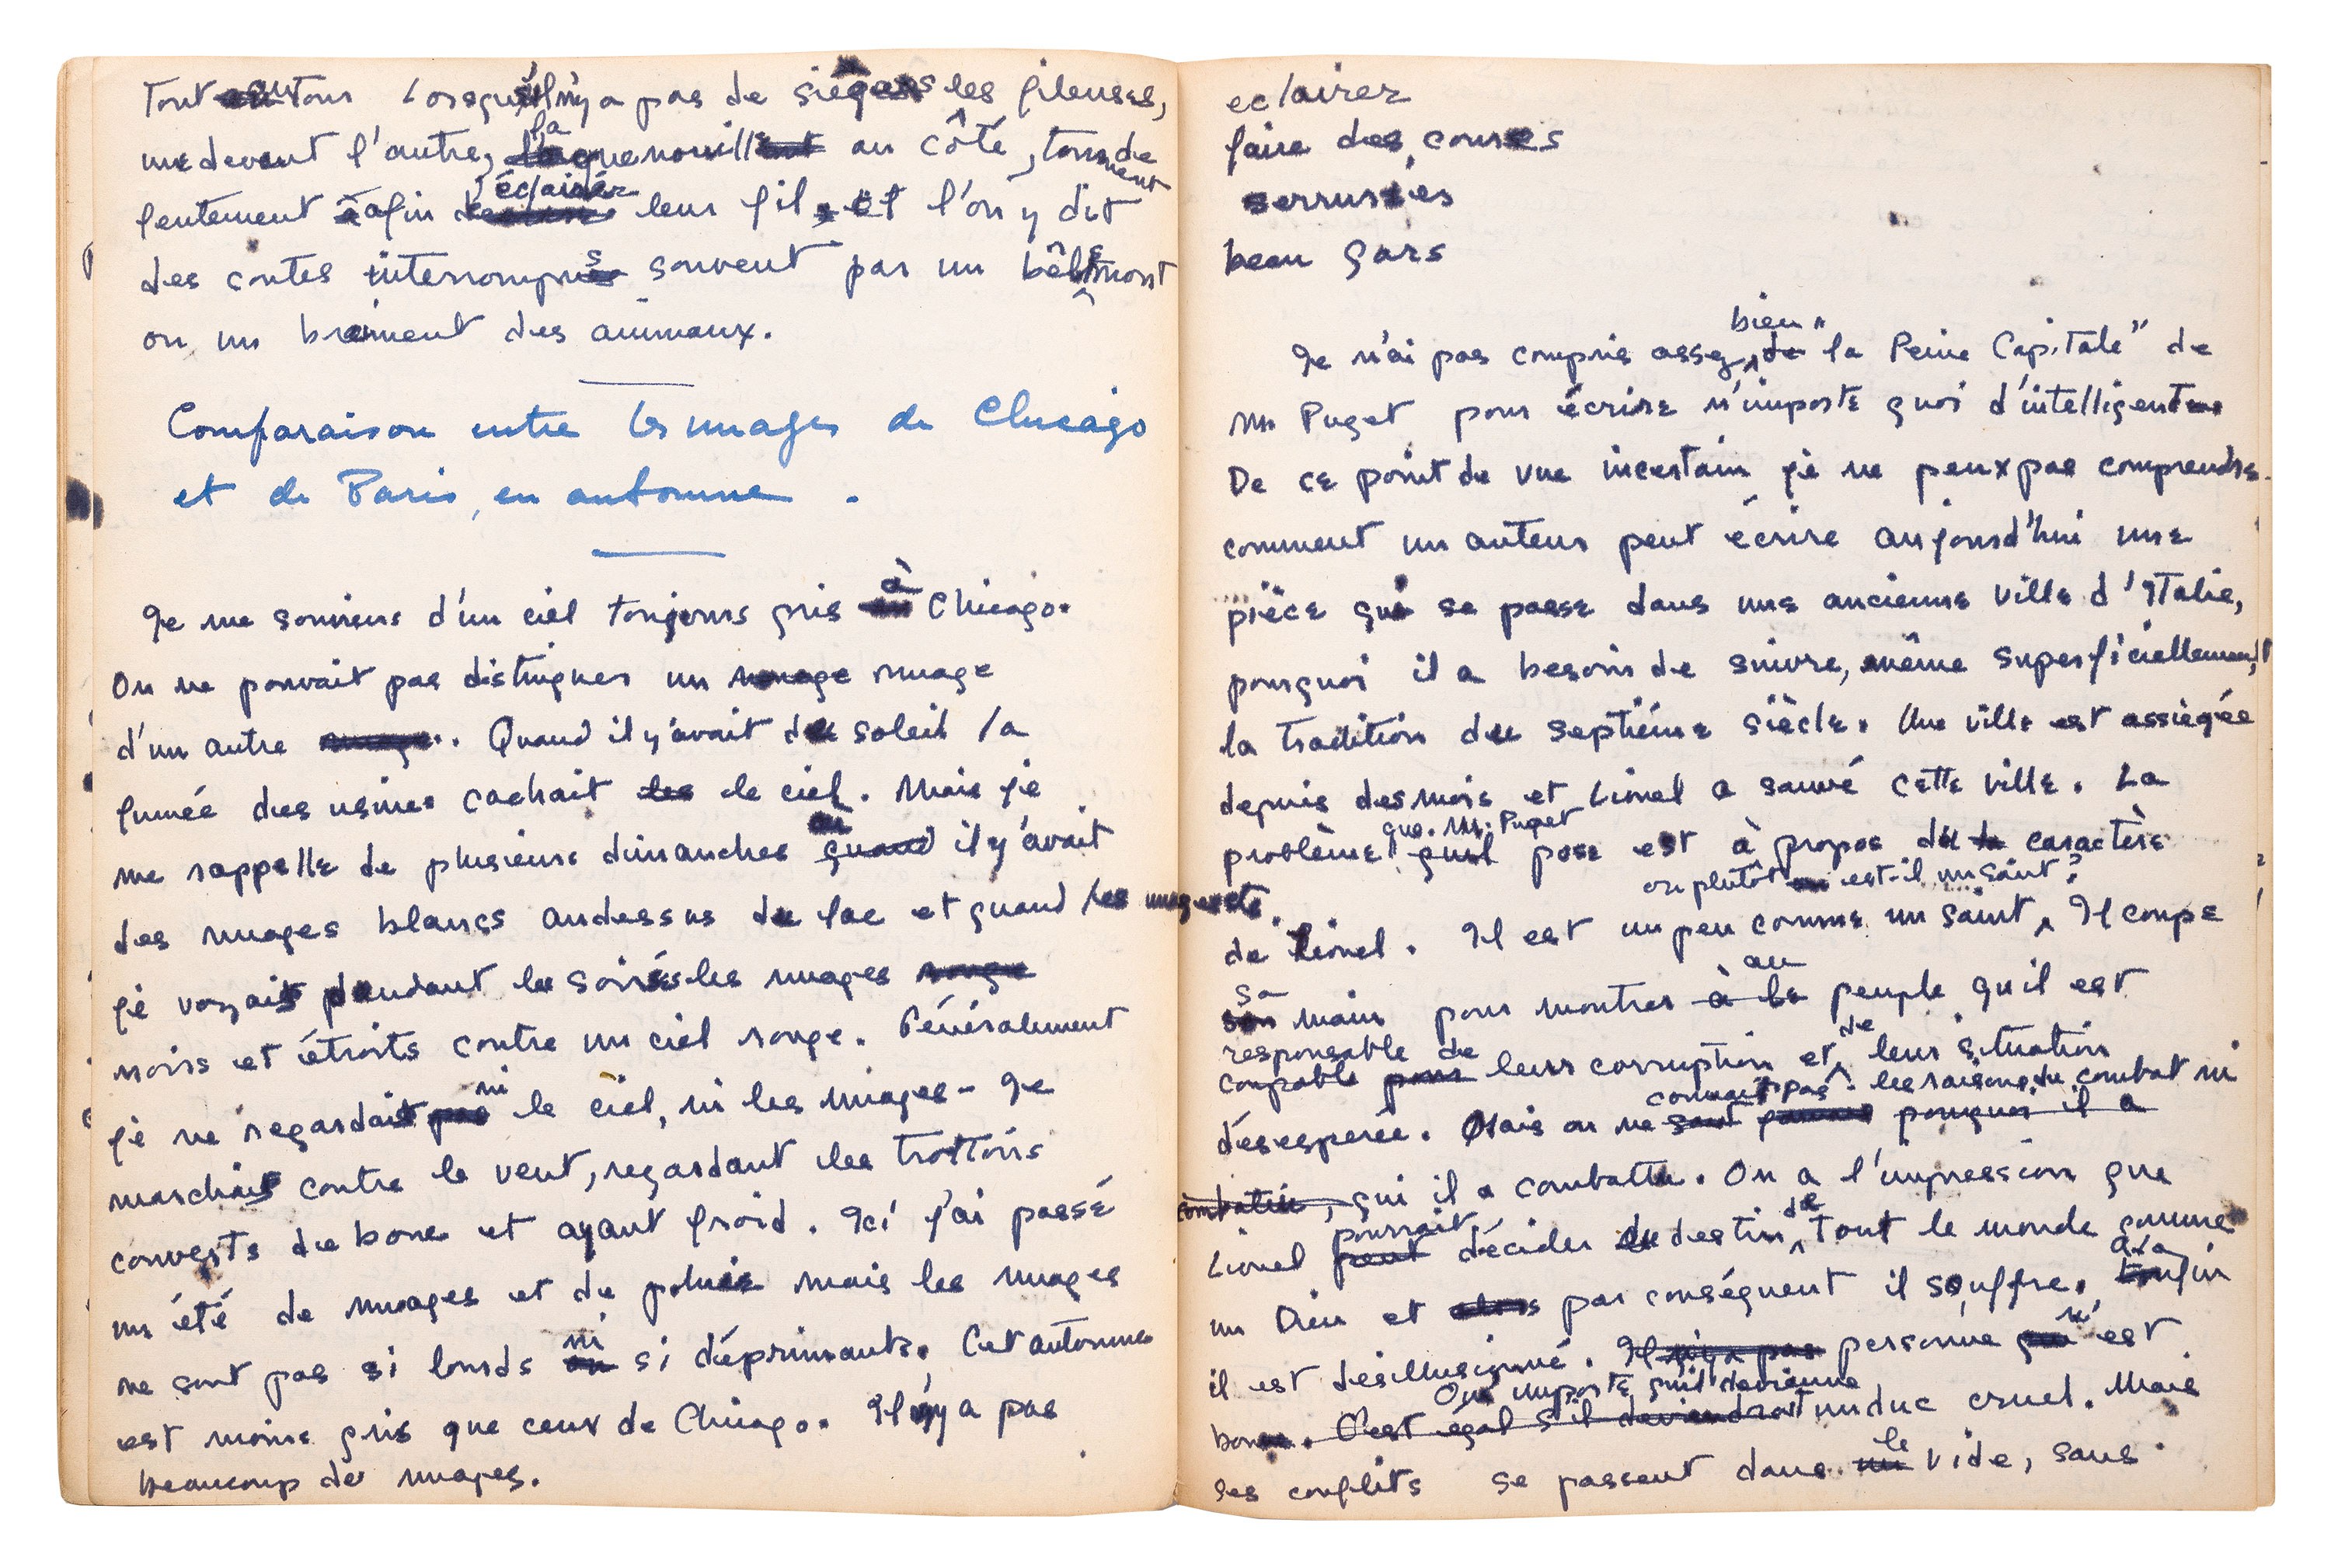 Tout autour Lorsqu'il n'y a pas de sièges les fileuses,
une devant l'autre, la quenouille au côté, tournent de
lentement afin d'éclairer leur fil et l'on y dit
des contes interrompus souvent par un bêlement
ou un braiment des animaux.
Comparaison entre les nuages de Chicago
et de Paris, en automne.
Je me souviens d'un ciel toujours gris à Chicago.
On ne pouvait pas distinguer un nuage nuage
d'un autre nuage. Quand il y'avait du soleil la
fumée des usines cachait les le ciel. Mais je
me rappelle de plusieurs dimanches où quand il y'avait
des nuages blancs audessus du lac et quand les
je voyais pendant les soirées les nuages rouge
noirs et étroits contre un ciel rouge. Généralement
je ne regardais pas ni le ciel, ni les nuages - Je
marchais contre le vent, regardant les trottoirs
couverts de boue et ayant froid. Ici j'ai passé
un été de nuages et de pluie mais les nuages
ne sont pas si lourds ou ni si déprimants. Cet automne
est moins gris que ceux de Chicago. Il n'y a pas
beaucoup de nuages.
eclairer
faire des courses
serrusies
beau gars
Je n'ai pas compris assez bien de "la Peine Capitale" de
M. Puget pour écrire n'importe quoi d'intelligent
De ce point de vue incertain je ne peux pas comprendre
comment un auteur peut écrire aujourd'hui une
pièce qui se passe dans une ancienne ville d'Italie,
pourquoi il a besoin de suivre, même superficiellement,
la tradition du septième siècle. Une ville est assiégée
depuis des mois et Lionel a sauvé cette ville. La
problème qu'il que M. Puget pose est à propos du la caractère
de Lionel. Il est un peu comme un saint, ou plutôt est-il un saint? Il coupe
son sa main pour montrer à le au peuple qu'il est
coupable pour responsable de leurs corruption et de leur situation
désesperée. Mais on ne sait jamais pourquoi il a connait pas les raisons du combat ni
combattu, qui il a combattu. On a l'impression que
Lionel peut pourrait décider du destin de tout le monde comme
un Dieu et alors par conséquent il souffre. A la fin
il est désillusionné. Il n'y a pas personne qui n'est
bon. C'est egal s'il deviendrait Que importe qu'il devienne un duc cruel. Mais
ses conflits se passent dans un le vide, sans